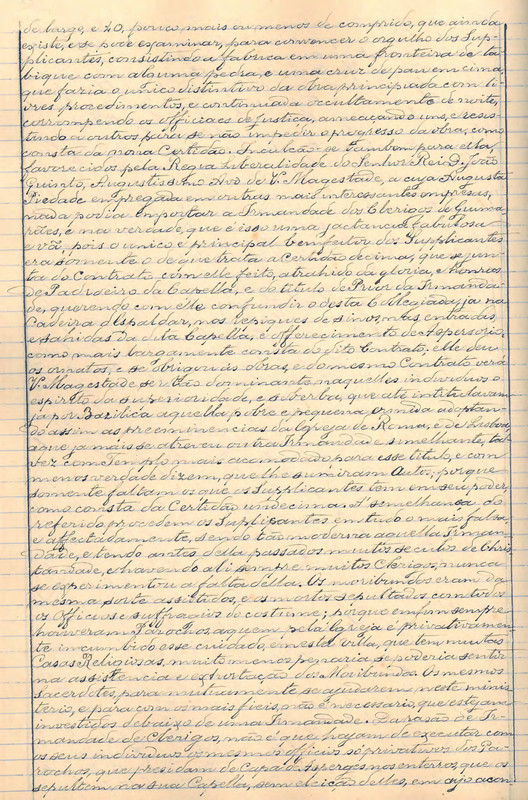 de largo, e 40, pouco mais ou menos de comprido, que ainda
existe, e se pode examinar, para convencer o orgulho dos Sup-
plicantes, consistindo a fabrica em uma fronteira de ta-
bique com alguma pedra, e uma cruz de pau em cima
que fazia o unico distinctivo da obra principiada com li-
vres procedimentos, e continuada occultamente de noite,
corrompendo os officiaes de justiça, ameaçando uns, e resis-
tindo a outros, para se não impedir o progresso da obra, como
consta da nona Certidão. Inculcão-se tambem para ella,
favorecidos pela Regia liberalidade do Senhor Rei D. João
Quinto, Augustissimo Avo de V. Magestade, a cuja Augusta
Piedade empregada em outras mais interessantes empresas,
nada podia importar a Irmandade dos Clerigos de Guima-
rães, e na verdade, que é isso uma jactancia fabulosa
e vã, pois o unico e principal bemfeitor dos Supplicantes
era somente o de que trata a Certidão decima, que se jun-
ta do Contrato com elle feito, atrahido da gloria, e honras
de Padroeiro da Capella, e do titulo de Prior da Irmanda-
de, querendo com elle confundir o desta Collegiada, ja na
Cadeira d'Espaldar, nos repiques de sinos nas entradas,
e sahidas da dita Capella, e offerecimento de Aspersorio,
como mais largamente consta do dito Contrato; elle deu
os ornatos, e se obrigou ás obras, e do mesmo Contrato verá
V. Magestade ser tão dominante naquelles individuos o
espirito da superioridade, e soberba, que até intitulavam
já por Bazilica aquella pobre e pequena ermida adoptan-
do assim as preeminencias da Igreja de Roma, e de Lisboa,
a que jamais se atreveu outra Irmandade similhante, tal
vez com Templo mais accomodado para esse titulo, e com
menos verdade dizem, que lhe sumiram Autos, porque
somente faltam os que os Supplicantes tem em seu poder,
como consta da Certidão undecima. Á semelhança do
referido procedem os Suplicantes em tudo o mais falsa,
e affectadamente, sendo tão moderna aquella Irman-
dade, e tendo antes della passados muitos seculos de Chris-
tandade, e havendo ali sempre muitos Clerigos, nunca
se experimentou a falta della. Os moribundos eram da
mesma sorte assistidos, e os mortos sepultados com todos
os Officios e suffragios do costume; porque emfim sempre
houveram Parochos, a quem pela Igreja é privativamen-
te incumbido esse cuidado, e nesta Villa, que tem muitas
Casas Religiosas, muito menos penuria se poderia sentir
na assistencia e exhortação dos Moribundos. Os mesmos
Sacerdotes, para mutuamente se ajudarem neste minis-
terio, e para com os mais fieis, não é necessario, que estejam
investidos debaixo de uma Irmandade. Da rasão de Ir-
mandade de Clerigos, não é que hajam de executar com
os seus individuos os mesmos officios só privativos dos Pa-
rochos, que presidam de Capa d'Asperges, nos enterros, que os
sepultem, na sua Capella, sem eleição delles, em cujo acon-